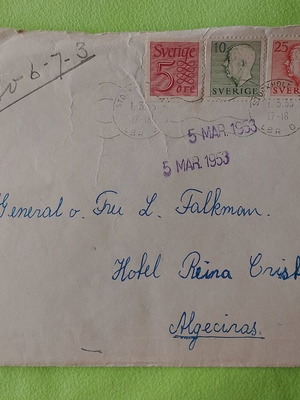 6-7-3
Sverige
5
öre
10
SVERIGE
25
SVERIGE
17-18
5 MAR. 1953
5 MAR. 1953
General o. Fru L. Falkman.
Hotel Reina Crist
Algeciras.